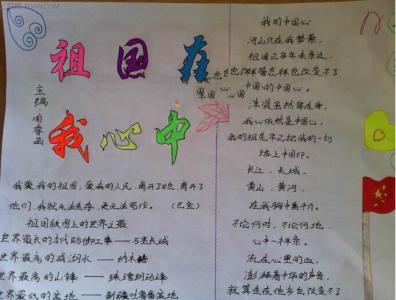 祖国在
我心中
主编
我爱我的祖国，爱我的人民，离开了她，离开了
他们，我就无法生存，更无法写作。（巴金）
祖国版图上的世界之最
世界最高的山峰——珠穆朗玛峰
世界最低的盆地——新疆吐鲁番盆地
我的中国心
河山只在我梦萦，
祖国已多年未亲近，
可是不管怎样也改变不了
我的中国心。
洋装虽然穿在身，
我心依然是中国心，
我的祖先早已把我的一切
烙上中国印。
长江、长城，
黄山、黄河，
在我胸中重千斤。
不论何时，不论何地，
心中一样亲。
流在心里的血，
澎湃着中华的声音，
就算生在他乡也改变不了